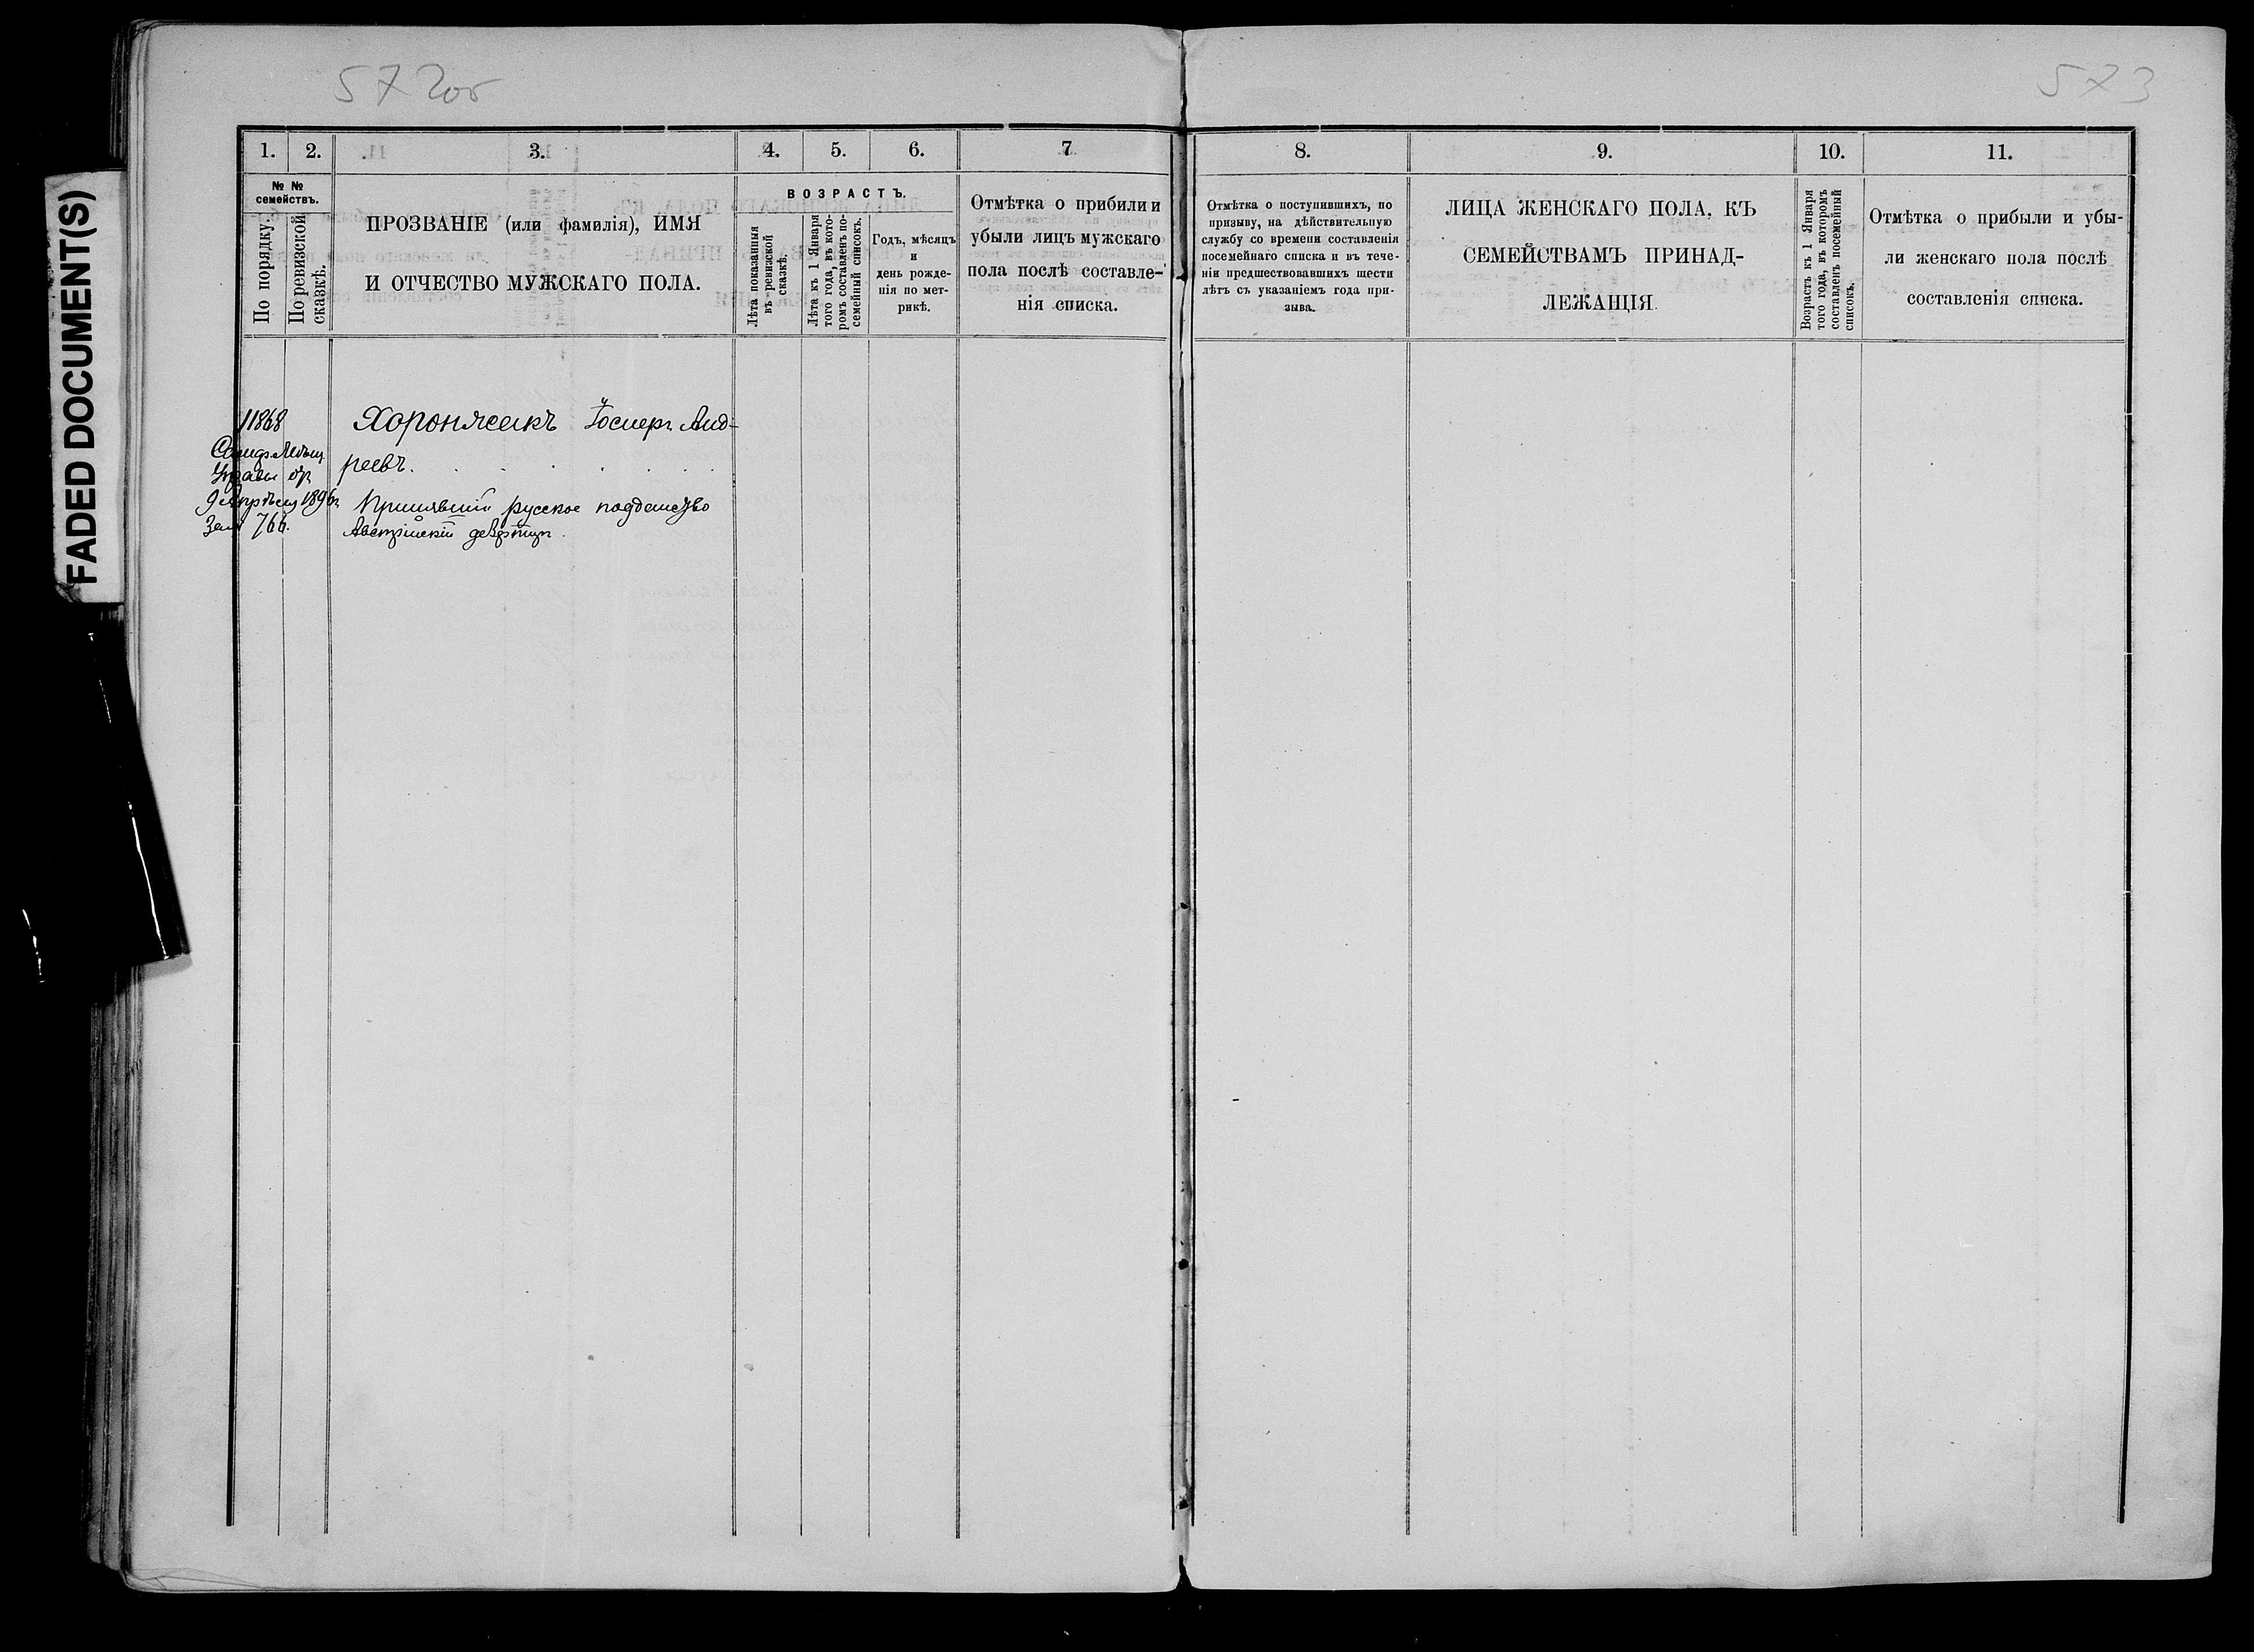 572об
573
FADED DOCUMENT(S)
1.
2.
3.
4.
5.
6.
7
8.
9.
10.
11.
№ №
семействъ.
По порядку.
По ревизской
сказкѣ.
ПРОЗВАНІЕ (или фамилія), ИМЯ
И ОТЧЕСТВО МУЖСКАГО ПОЛА.
ВОЗРАСТЪ.
Лѣта показанныя
въ ревизской
сказкѣ.
Лѣта къ 1 Января
того года, въ кото-
ромъ составленъ по-
семейный списокъ.
Годъ, мѣсяцъ
и
день рожде-
нія по мет-
рикѣ.
Отмѣтка о прибили и
убыли лицъ мужскаго
пола послѣ составле-
нія списка.
Отмѣтка о поступившихъ, по
призыву, на дѣйствительную
службу со времени составленія
посемейнаго списка и въ тече-
ніи предшествовавшихъ шести
лѣтъ съ указаніемъ года при-
зыва.
ЛИЦА ЖЕНСКАГО ПОЛА, КЪ
СЕМЕЙСТВАМЪ ПРИНАД-
ЛЕЖАЩІЯ.
Возрастъ къ 1 Января
того года, въ которомъ
составленъ посемейный
списокъ.
Отмѣтка о прибыли и убы-
ли женскаго пола послѣ
составленія списка.
11868
Управы от
9 Апрѣля 1896
766.
Іосифъ Анд-
реевъ.
Принявшій русское подданство
Австрійскій дезертиръ.